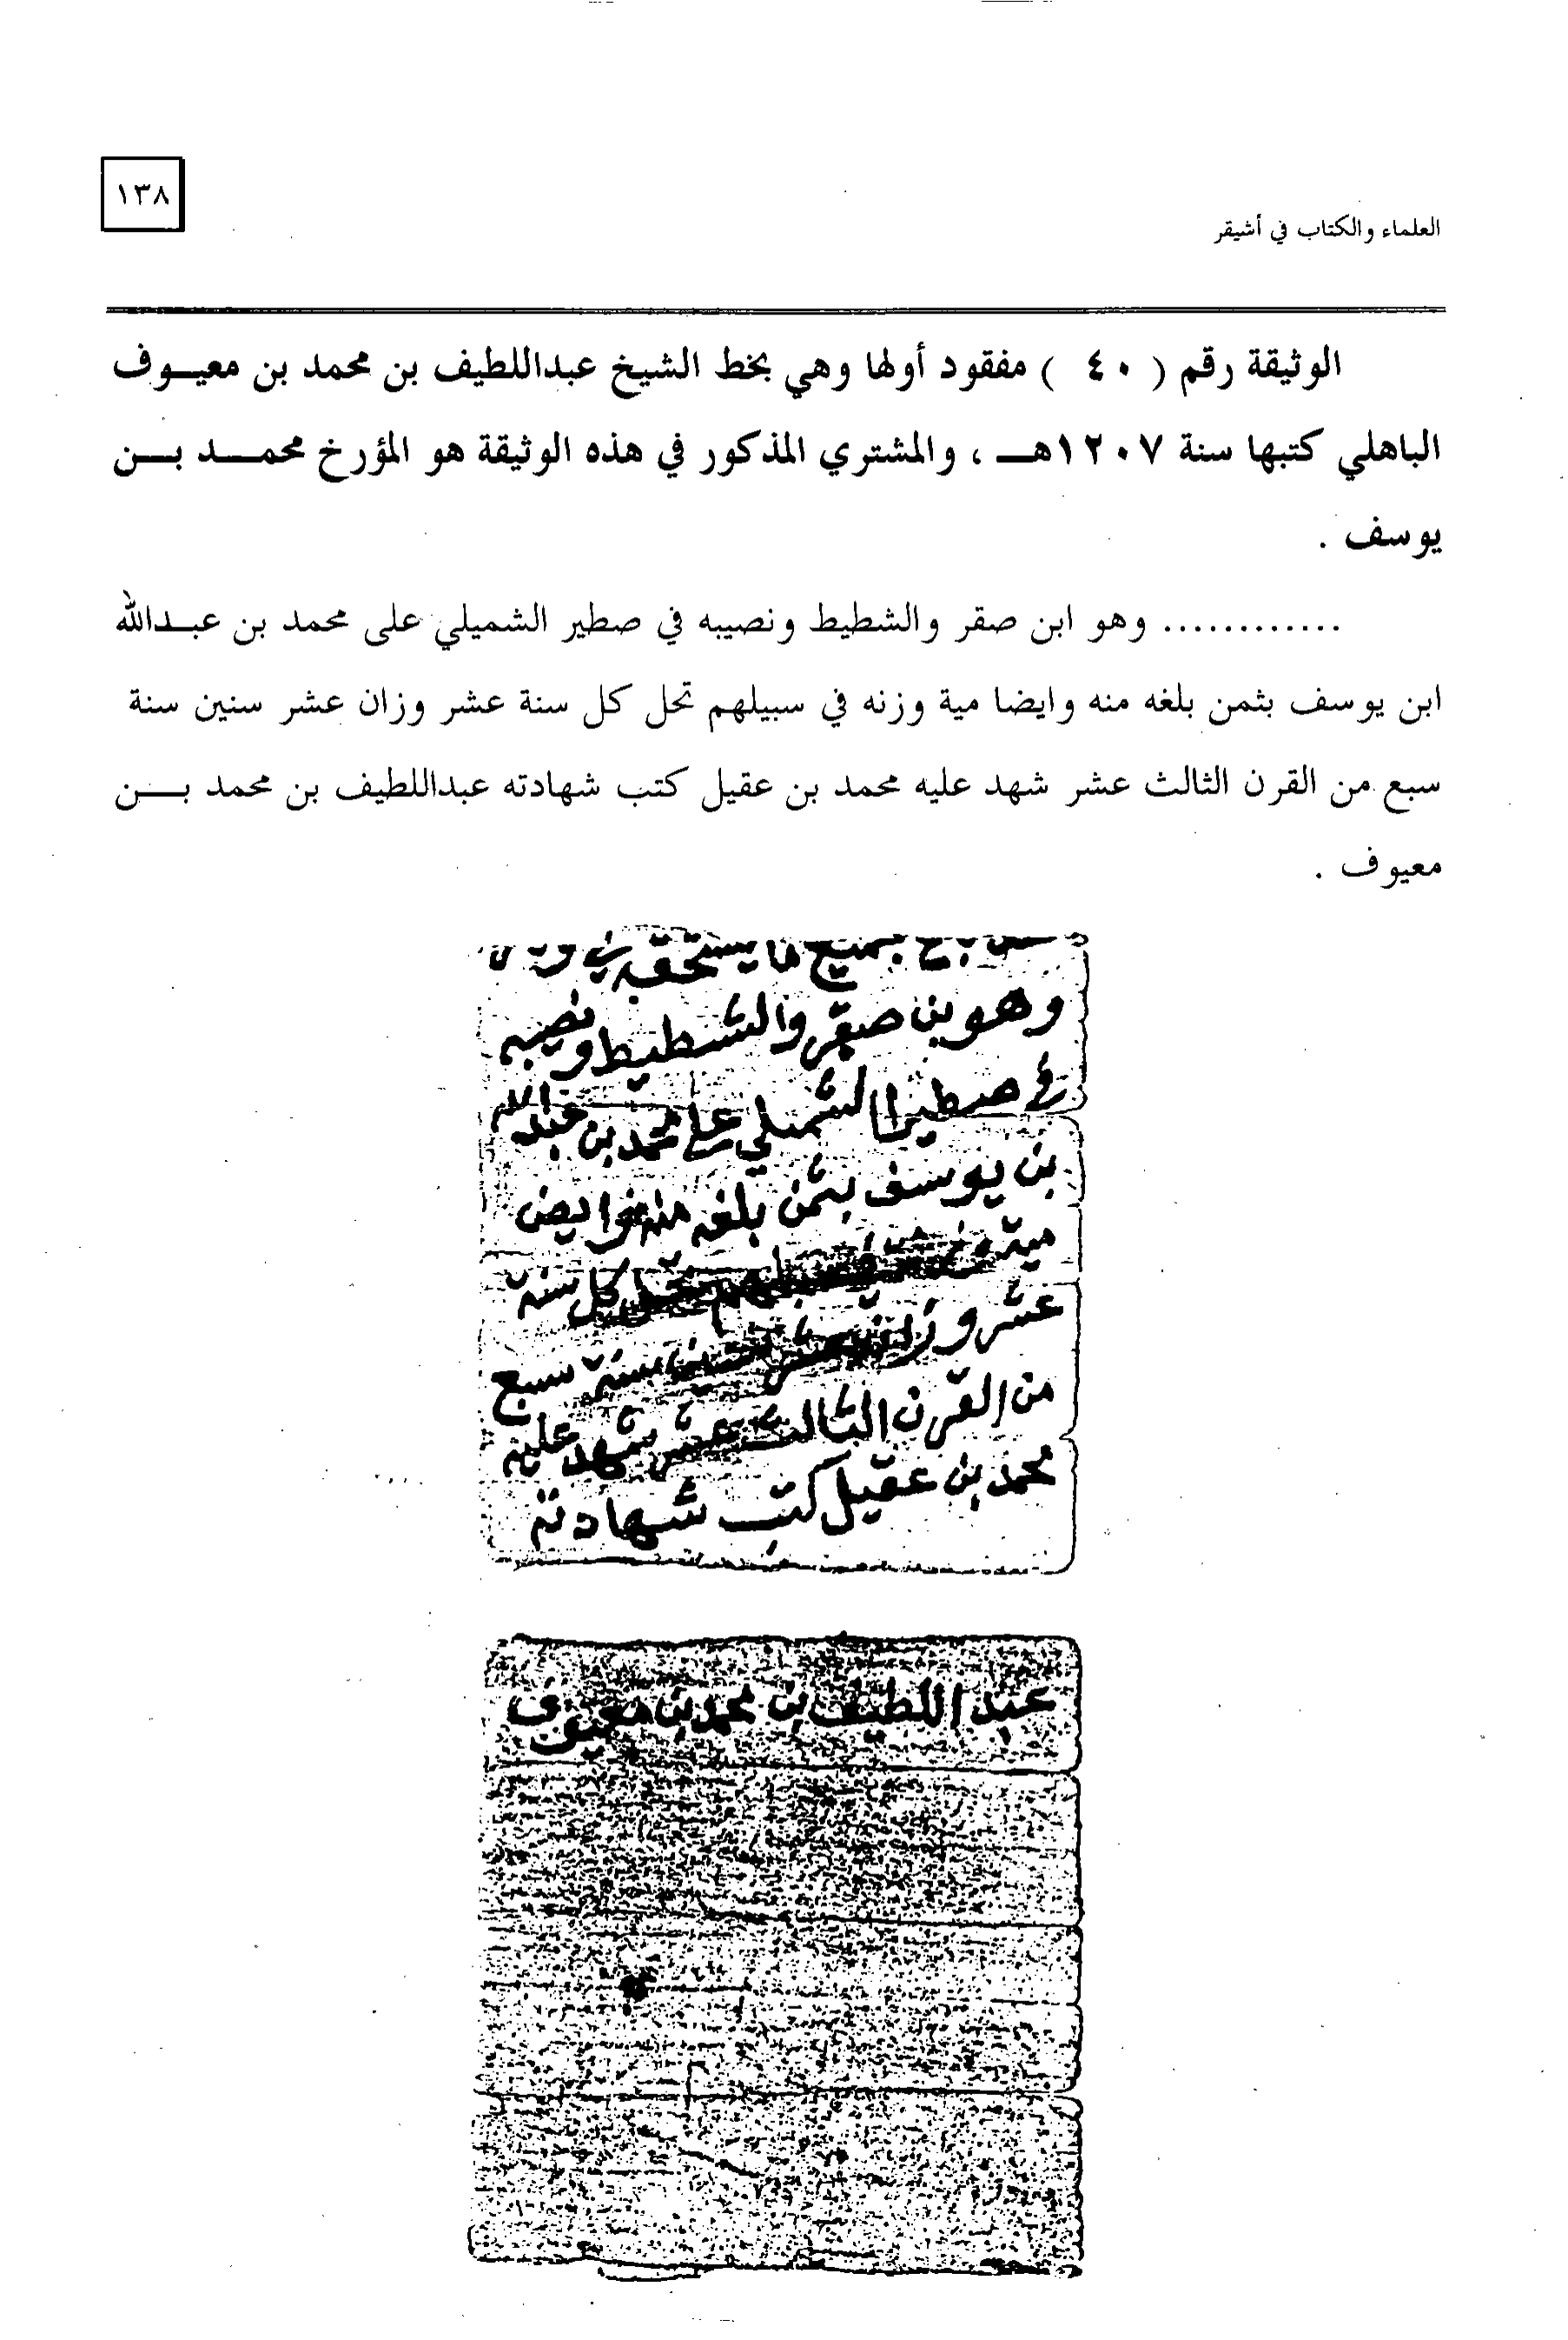 ١٣٨
العلماء والكتاب في أشيقر
الوثيقة رقم ( ٤٠ ) مفقود أولها وهي بخط الشيخ عبداللطيف بن محمد بن معيوف
الباهلي كتبها سنة ١٢٠٧هـ ، والمشتري المذكور في هذه الوثيقة هو المؤرخ محمد بن
يوسف .
............ وهو ابن صقر والشطيط ونصيبه في صطير الشميلي على محمد بن عبدالله
ابن يوسف بثمن بلغه منه وايضا مية وزنه في سبيلهم تحل كل سنة عشر وزان عشر سنين سنة
سبع من القرن الثالث عشر شهد عليه محمد بن عقيل كتب شهادته عبداللطيف بن محمد بن
معيوف .
بجميع ما يستحقه في
وهو بن صقر والشطيط ونصيبه
في صطير الشميلي على محمد بن عبدالله
بن يوسف بثمن بلغه منه وايض
مية كل سنة
عشر وزان عشر سنين سنة سبع
من القرن الثالث عشر شهد عليه
محمد بن عقيل كتب شهادته
عبد اللطيف بن محمد بن معيوف